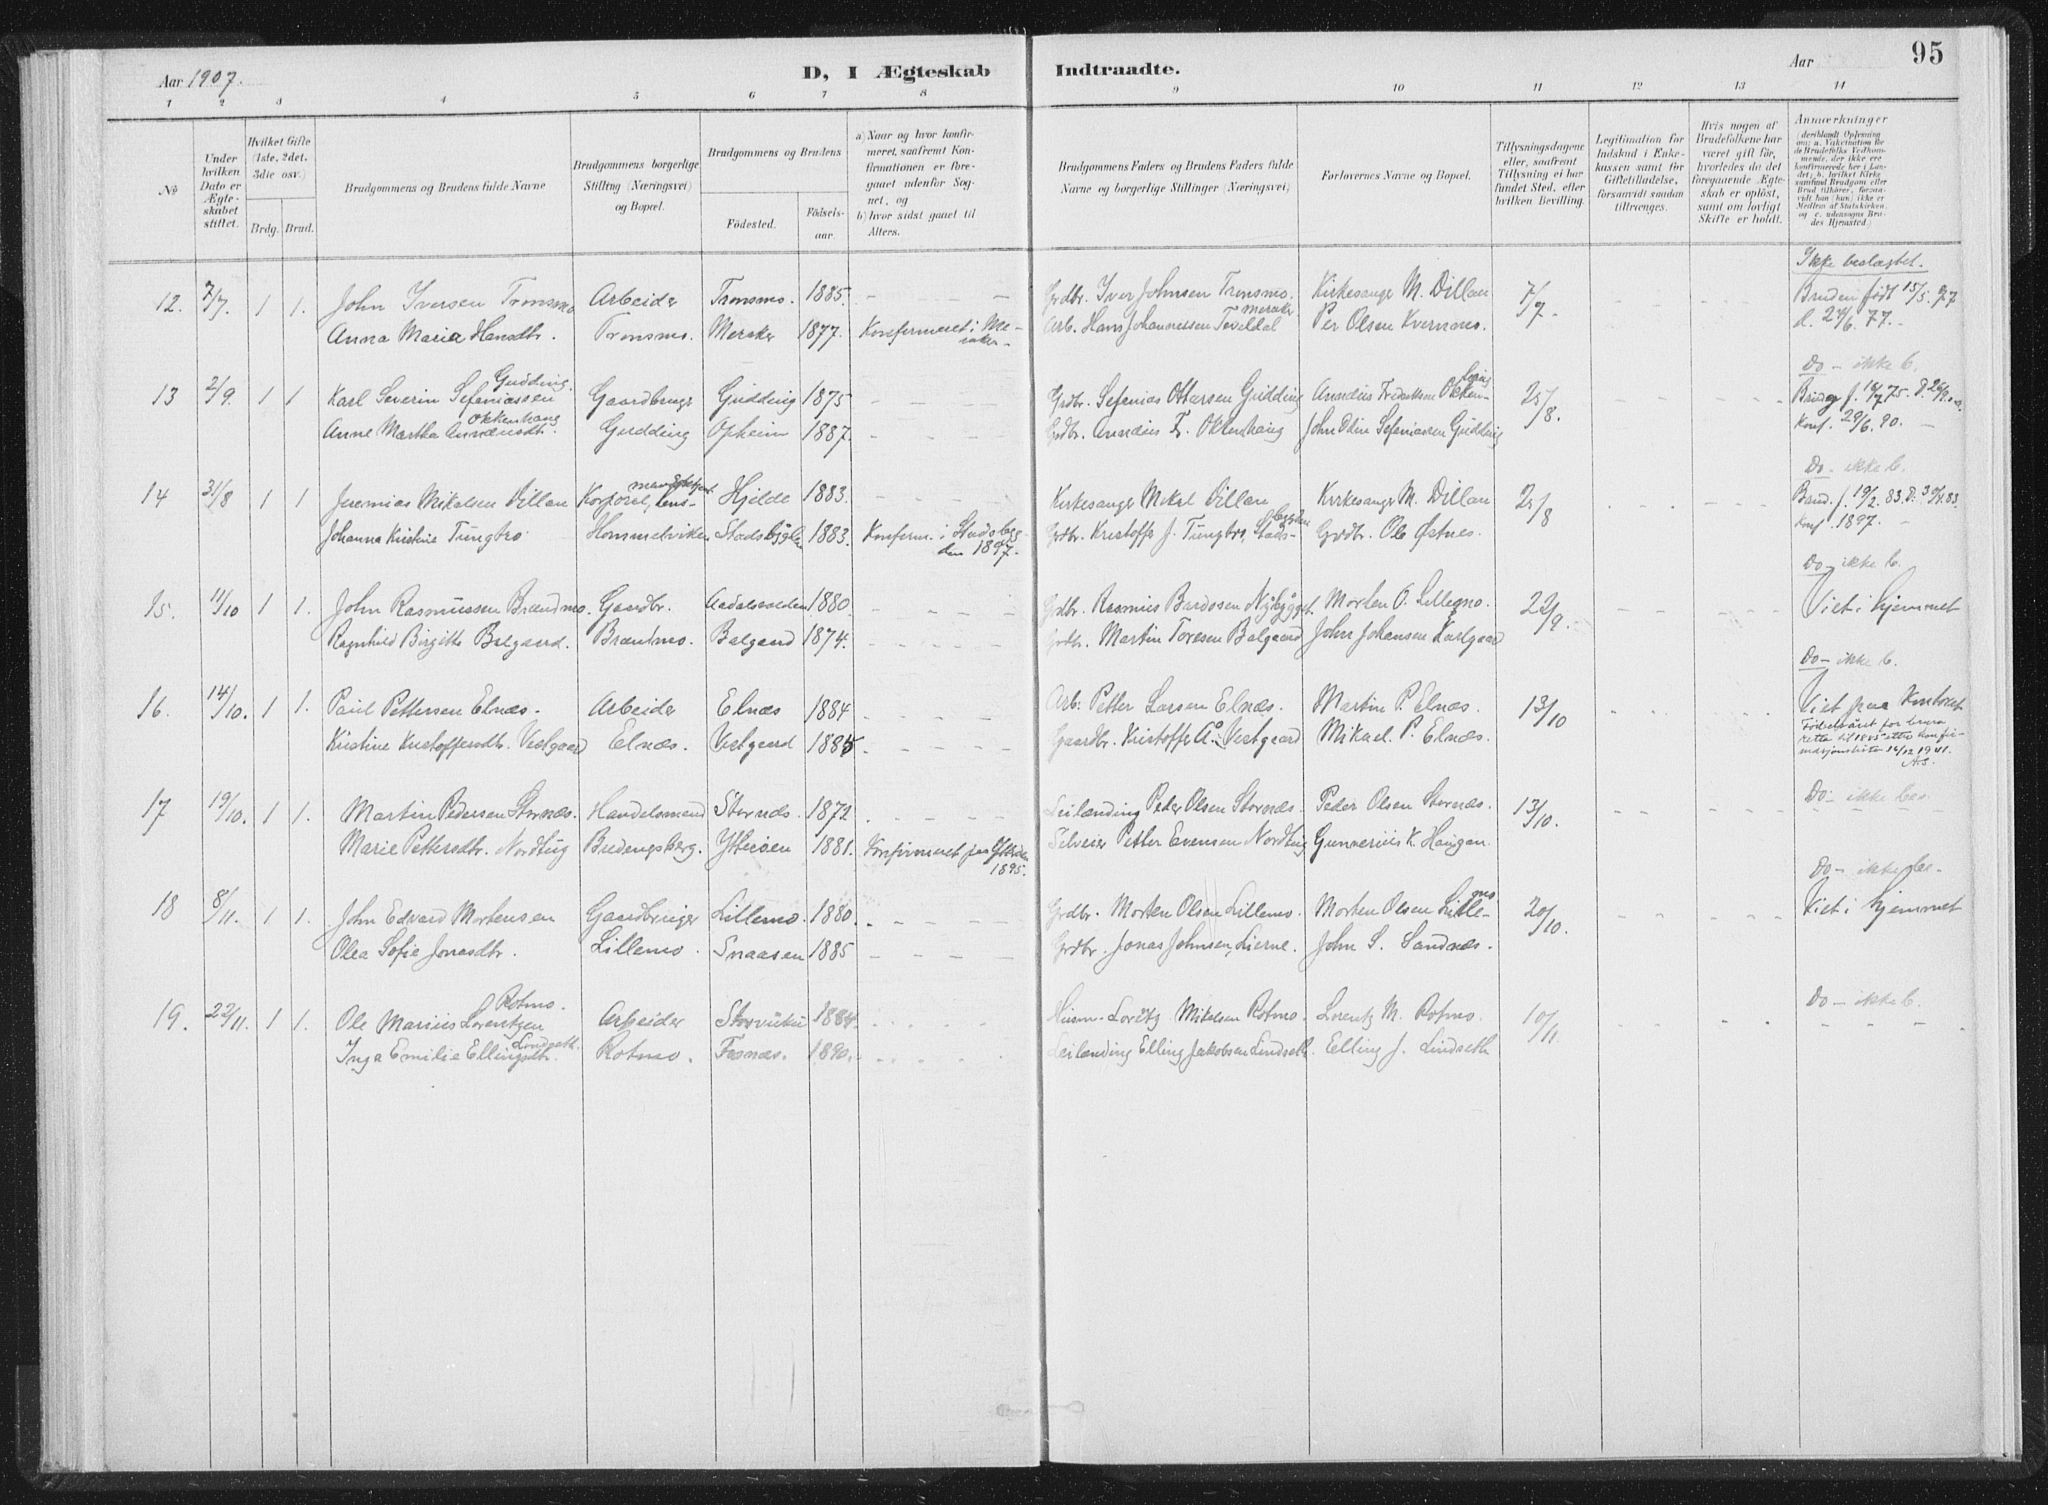 Aar 1907.
D, I Ægteskab
Indtraadte.
Aar
95
1 2 3 4 5 6 7 8 9 10 11 12 13 14
No
Under hvilken Dato er Ægteskabet stiftet.
Hvilket Gifte (1ste, 2det, 3die osv.)
Brdg. Brud.
Brudgommens og Brudens fulde Navne
Brudgommens borgerlige Stilling (Næringsvei) og Bopæl.
Brudgommens og Brudens
Fødested.
Fødselsaar.
a) Naar og hvor konfirmeret, saafremt Konfirmationen er foregaaet udenfor Sognet, og
b) hvor sidst gaaet til Alters.
Brudgommens Faders og Brudens Faders fulde Navne og borgerlige Stillinger (Næringsvei)
Forlovernes Navne og Bopæl.
Tillysningsdagene eller, saafremt Tillysning ei har fundet Sted, efter hvilken Bevilling.
Legitimation for Indskud i Enkekassen samt for Giftetilladelse, forsaavidt saadan tiltrænges.
Hvis nogen af Brudefolkene har været gift før, hvorledes da det foregaaende Ægteskab er opløst, samt om lovligt Skifte er holdt.
Anmærkninger
(deriblandt Oplysning om: a. Vaksination for de Brudefolks Vedkommende, der ikke ere konfirmerede her i Landet; b. hvilket Kirkesamfund Brudgom eller Brud tilhører, forsaavidt han (hun) ikke er Medlem af Statskirken, og c. udensogns Brudes Hjemsted.)
Ikke beslægtet.
12. 7/7. 1 1. John Iversen Tronsmo Arbeider Tronsmo. 1885. Grdbr. Iver Johnsen Tronsmo. Kirkesanger M. Dillan 7/7. Bruden født 15/5 77
Anna Maria Hansdtr. Tronsmo. Meraker 1877. Konfirmeret i Meraker. Arb. Hans Johannessen Teveldal meraker Per Olsen Kvernmo. d. 24/6. 77.
Do - ikke b.
13 2/9. 1 1 Karl Severin Sefaniassen Gudding. Gaardbruger Gudding 1875 Grdbr. Sefanias Ottersen Gudding Annæus Fredriksen Okken- 25/8.
Anne Martha Annæusdt. Okkenhaug Gudding Opheim 1887. Grdbr. Annæus F. Okkenhaug John Odin Sefaniassen Gudding Konf. 29/6. 90.
Do - ikke b.
14 31/8 1 1 Jeremias Mikalsen Dillan Korporal, Hjelde 1883. Kirkesanger Mikal Dillan Kirkesanger M. Dillan 25/8 Brud. f. 19/2. 83.
Johanna Kristine Tungtrø Hommelviken Stadsbygden 1883. Konferm. i Stadsbygden 1897. Grdbr. Kristoffer J. Tungtrø, Stadsbygden Grdbr. Ole Østnes. Konf. 1897.
Do - ikke b.
15. 11/10 1 1. John Rasmussen Brændmo. Gaardbr. Aadalsvolden 1880 Grdbr. Rasmus Bardosen Nybygget. Morten O. Lillegno. 22/9. Viet i hjemmet
Ragnhild Birgitte Balgaard. Brændmo. Balgaard 1874. Grdbr. Martin Toresen Balgaard John Johansen Karlgaard
Do - ikke b.
16. 14/10. 1 1. Paul Pettersen Elnæs. Arbeider Elnæs 1884 Arb. Petter Larsen Elnæs. Martin P. Elnæs. 13/10 Viet paa Kontoret
Kristine Kristoffersdt. Vestgaard Elnæs. Vestgaard 1885 Gaardbr. Kristoffer A. Vestgaard Mikael P. Elnæs. Fødselsåret for brura retta til 1885 etter konfirmasjonslista 16/12 1941.
17 19/10. 1 1. Martin Pedersen Stornæs. Handelsmand Stornæs. 1872 Leilænding Peder Olsen Stornæs. Peder Olsen Stornæs. 13/10. Do - ikke bes.
Marie Pettersdtr. Nordtug Bredengsberg. Ytterøen 1881. Konfirmeret paa Ytterøen 1895. Petter Evensen Nordtug Gunnerius K. Haugan.
Do - ikke be-
18 8/11. 1 1. John Edvard Mortensen Gaardbruger Lillemo. 1880. Grdbr. Morten Olsen Lillemo. Morten Olsen Lillemo 20/10. Viet i hjemmet
Olea Sofie Jonasdtr. Lillemo. Snaasen 1885 Grdbr. Jonas Johnsen, Lierne. John S. Sandnæs.
Do - ikke b.
19. 22/11. 1 1. Ole Marius Lorentzen Rotmo. Arbeider Storvuku 1884. Husm. Mikalsen Rotmo. Lorentz M. Rotmo. 10/11
Inga Emilie Ellingsdtr. Lindseth. Rotmo. Fosnæs. 1890. Leilænding Elling Jakobsen Lindseth. Elling J. Lindseth